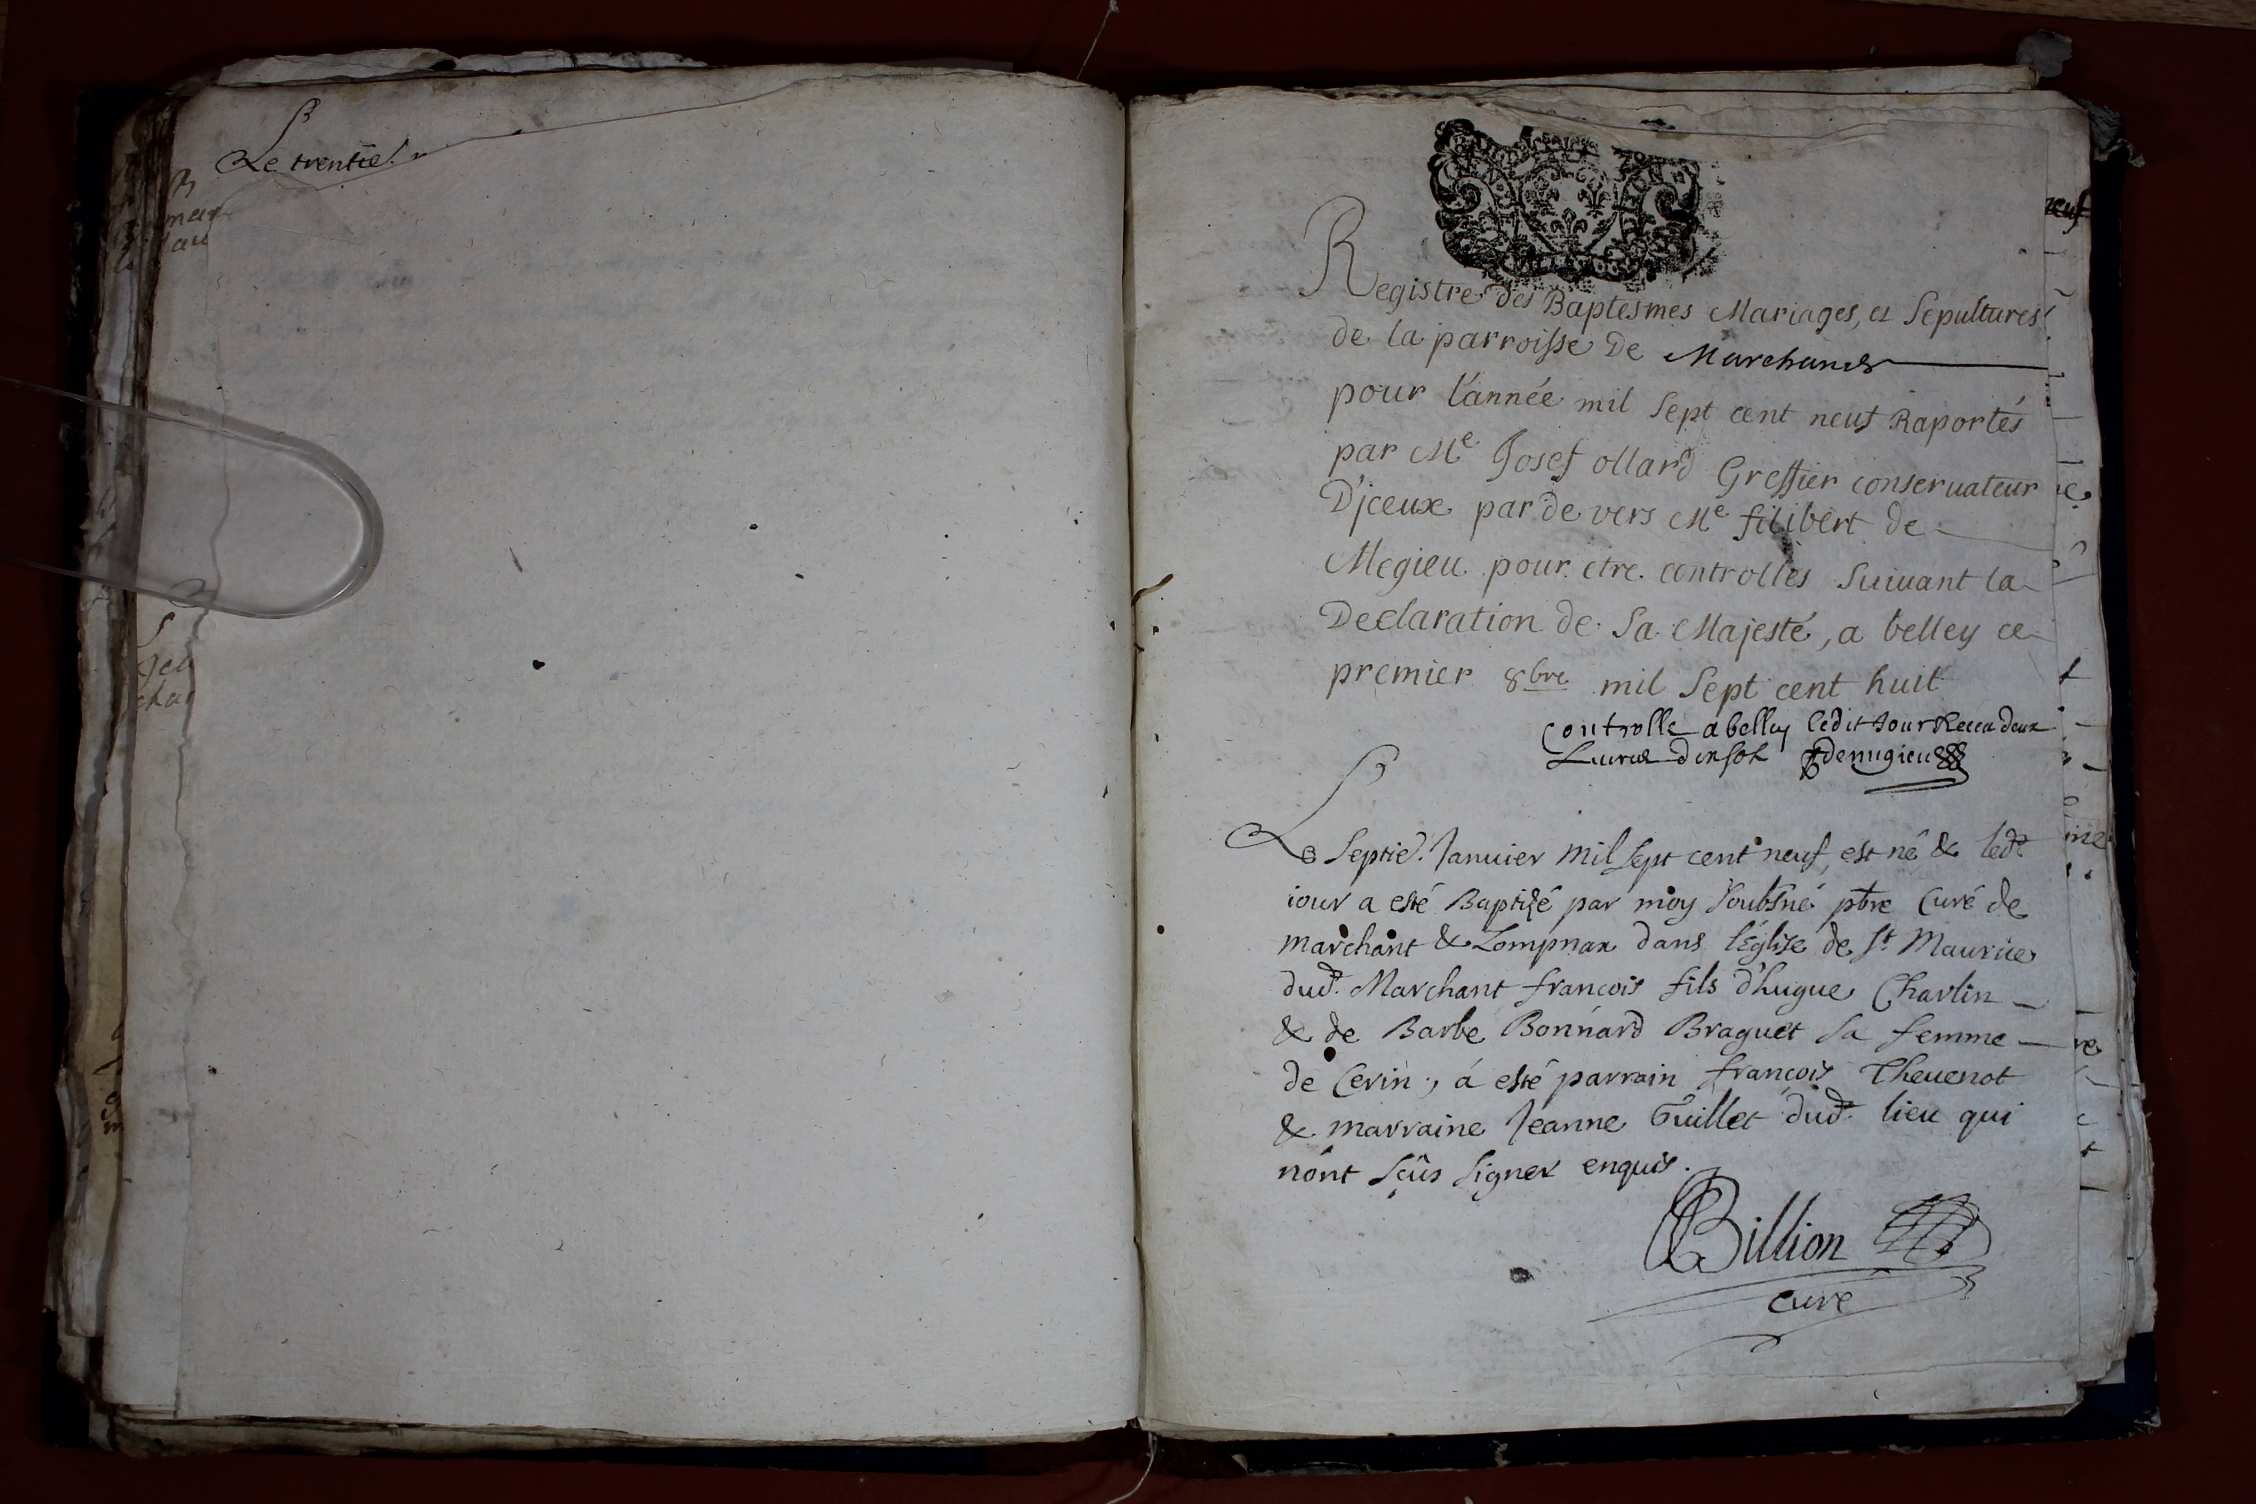 Le trentie.
Registre des Baptesmes Mariages, et Sepultures
de la parroisse de Marchand
pour l'année mil Sept cent neuf Raportés
par Me Josef ollard Greffier conseruateur
D'jceux par de vers Me filibert de
Megieu pour etre controlles Suiuant la
Declaration de Sa Majesté, a belley ce
premier 8bre mil Sept cent huit
Controlle a belley ledit Jour Receu deux
Liures dix sol
Le Septie. Januier mil sept cent neuf, est né & ledt
iour a esté Baptizé par moy soubsné pbre Curé de
marchant & Lompnax dans l'Eglise de St Maurice
dud. Marchant francois fils d'hugue Charlin
& de Barbe Bonnard Braguet sa femme
de Cerin, á esté parrain françois Theuenot
& marraine Jeanne Guillet dud. lieu qui
nont sçûs signer enquis.
Billion
curé